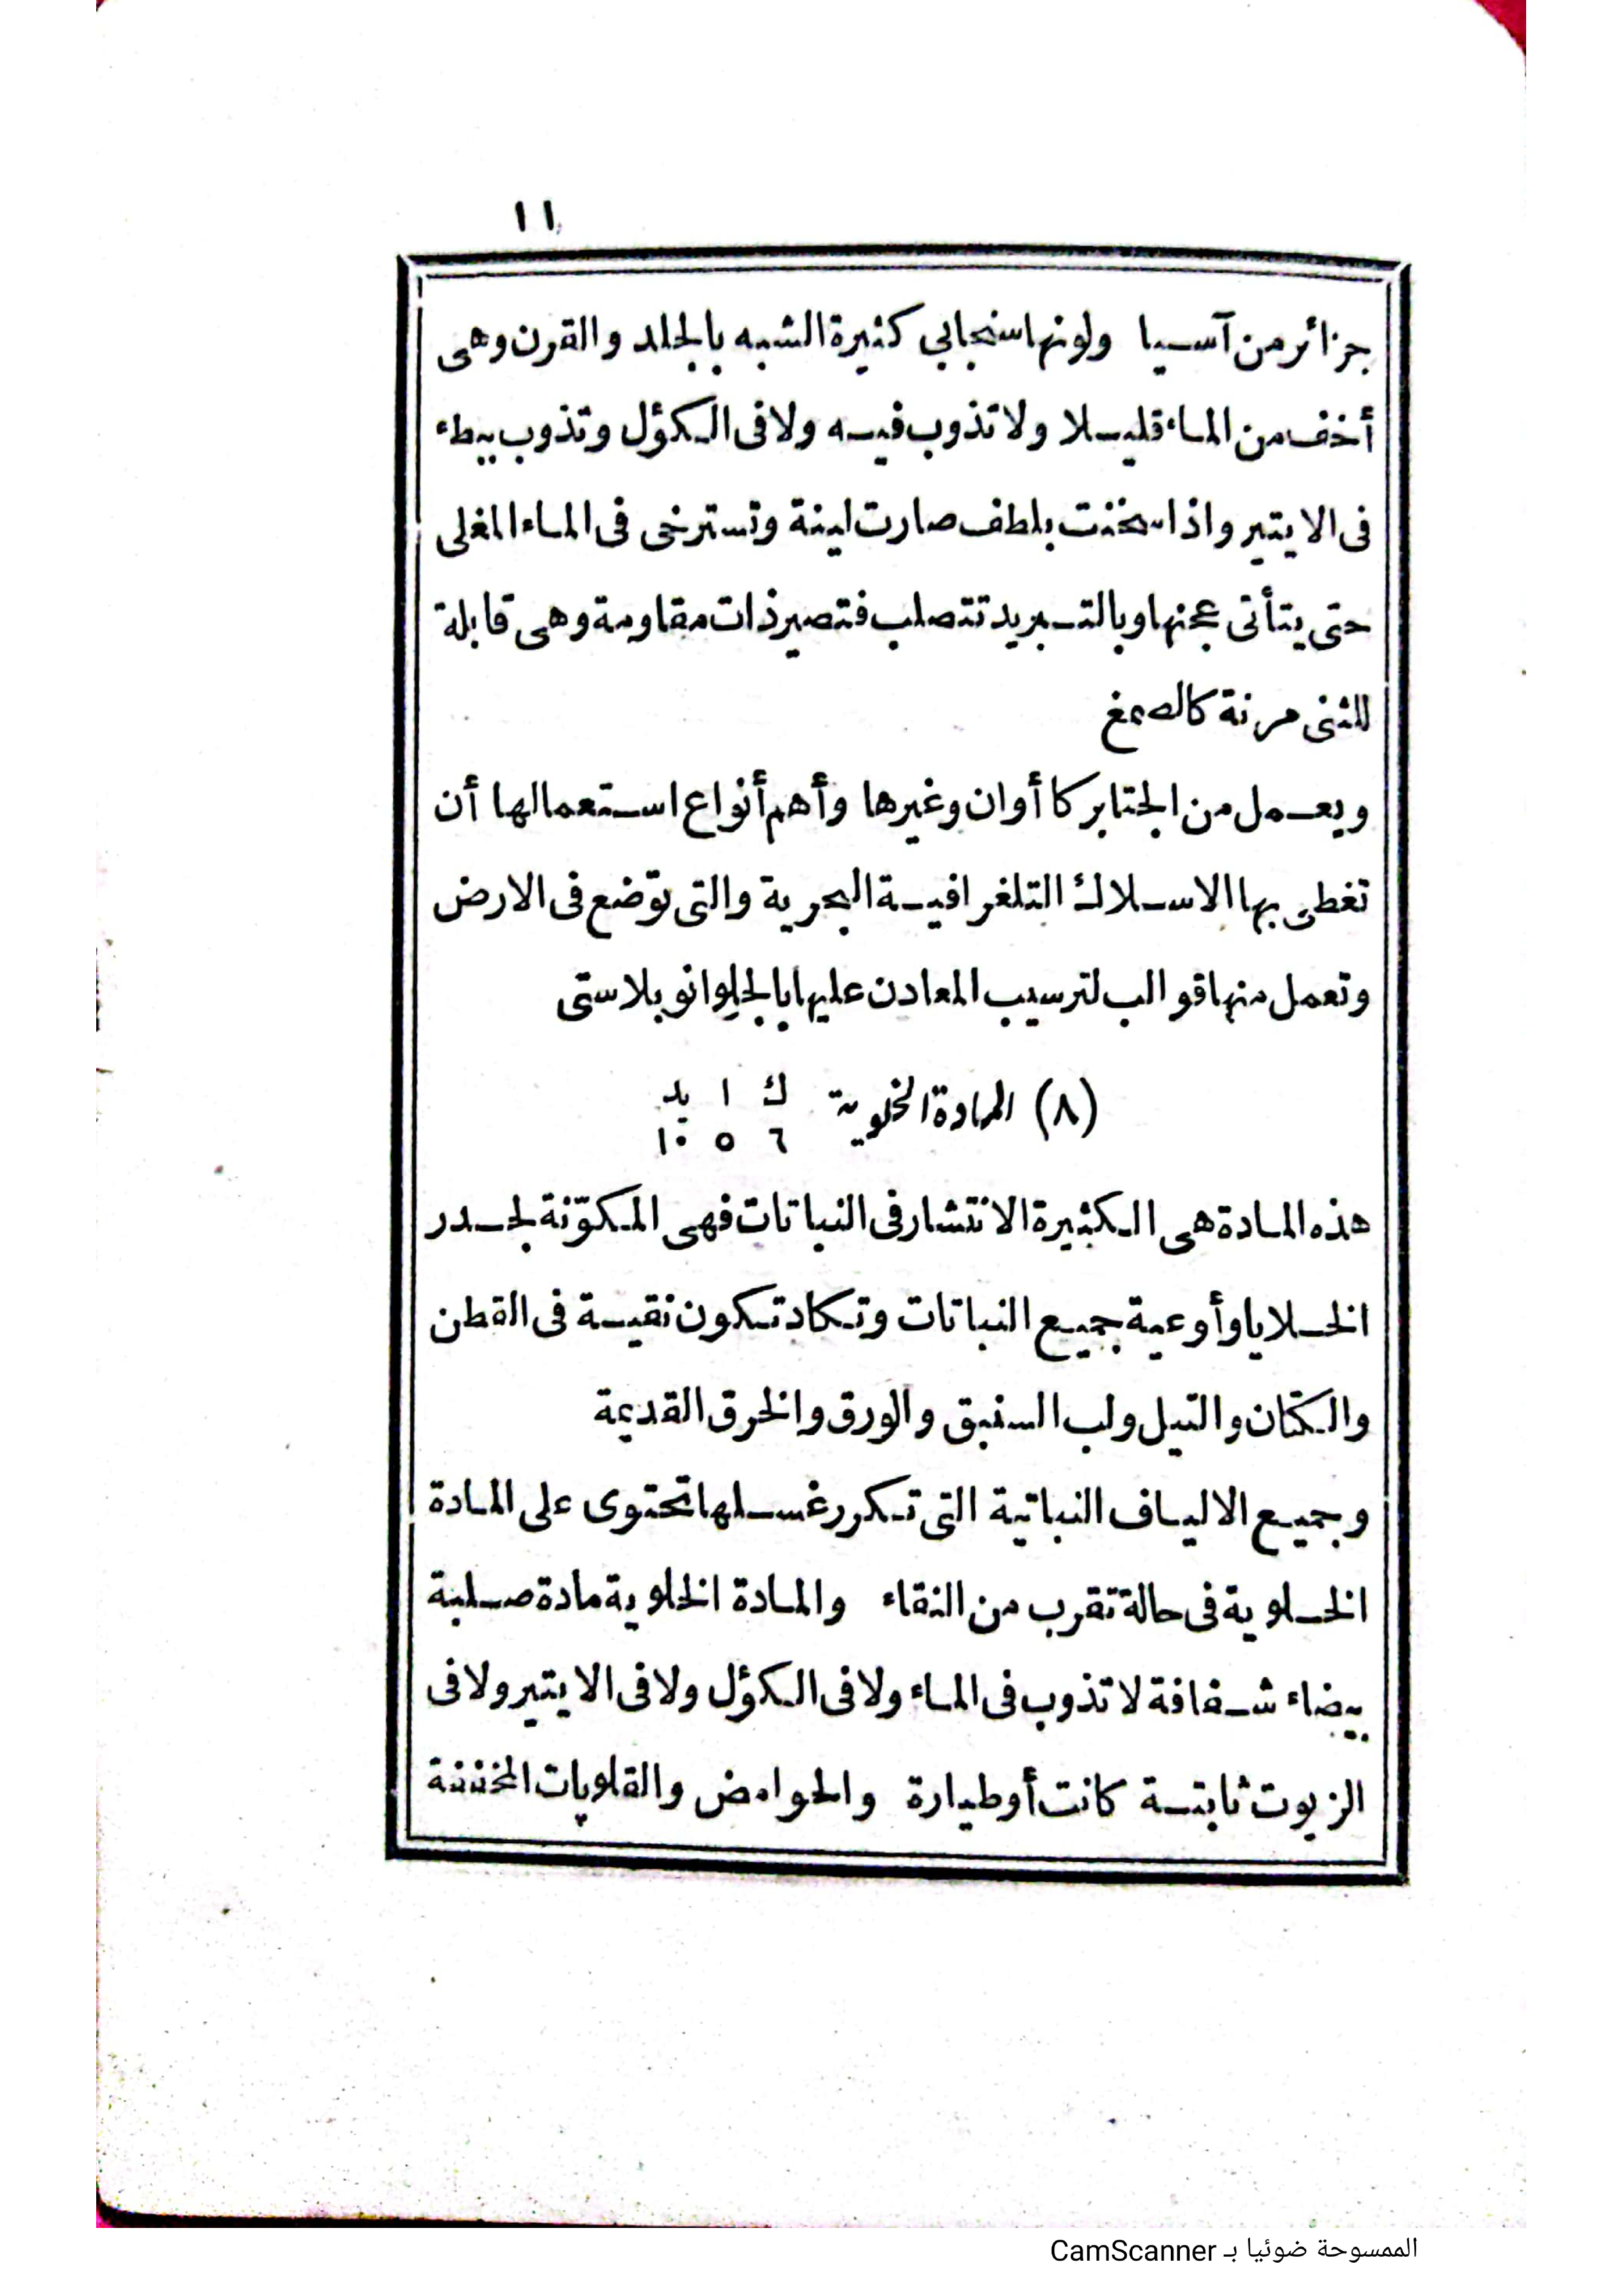 ١١
جزائر من آسيا ولونها سنجابي كثيرة الشبه بالجلد والقرن وهى
أخف من الماء قليلا ولا تذوب فيه ولا فى الكؤل وتذوب ببطء
فى الايتير واذا سخنت بلطف صارت لينة وتسترخى فى الماء المغلى
حتى يتأتى عجنها وبالتبريد تتصلب فتصير ذات مقاومة وهى قابلة
للثنى مرنة كالصمغ
ويعمل من الجتابركا أوان وغيرها وأهم أنواع استعمالها أن
تغطى بها الاسلاك التلغرافية البحرية والتى توضع فى الارض
وتعمل منها قوالب لترسيب المعادن عليها بالجلوانوبلاستى
(٨) المادة الخلوية ك ا يد
٦ ٥ ١٠
هذه المادة هى الكثيرة الانتشار فى النباتات فهى المكوّنة لجدر
الخلايا وأوعية جميع النباتات وتكاد تكون نقيسة فى القطن
والكتان والتيل ولب السنبق والورق والخرق القديمة
وجميع الالياف النباتية التى تكرر غسلها تحتوى على المادة
الخلوية فى حالة تقرب من النقاء والمادة الخلوية مادة صلبة
بيضاء شفافة لا تذوب فى الماء ولا فى الكؤل ولا فى الايتير ولا فى
الزيوت ثابتسة كانت أو طيارة والحوامض والقلويات المخففة
الممسوحة ضوئيا بـ CamScanner